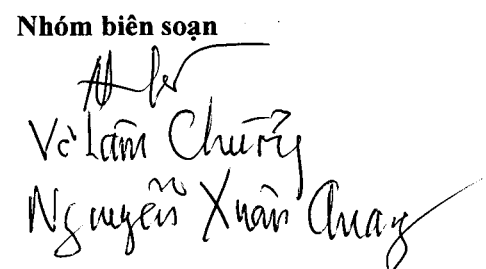 Nhóm biên soạn
Võ Lâm Chương
Nguyễn Xuân Quang